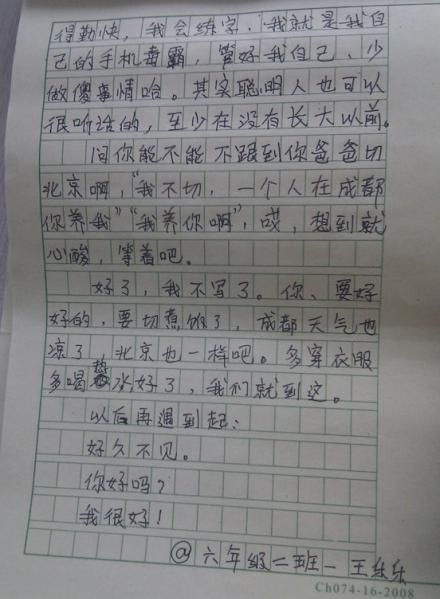 得勤快，我会练字，我就是我自
己的手机毒霸，管好我自己、少
做傻事情哈。其实聪明人也可以
很听话的，至少在没有长大以前。
问你能不能不跟到你爸爸切
北京啊，"我不切，一个人在成都
你养我""我养你啊"，哎，想到就
心酸，等着吧。
好了，我不写了。你、要好
好的，要切煮饭了，成都天气也
凉了，北京也一样吧。多穿衣服
多喝热水好了，我们就到这。
以后再遇到起：
好久不见。
你好吗？
我很好！
@六年级二班－王乐乐
Ch074-16-2008